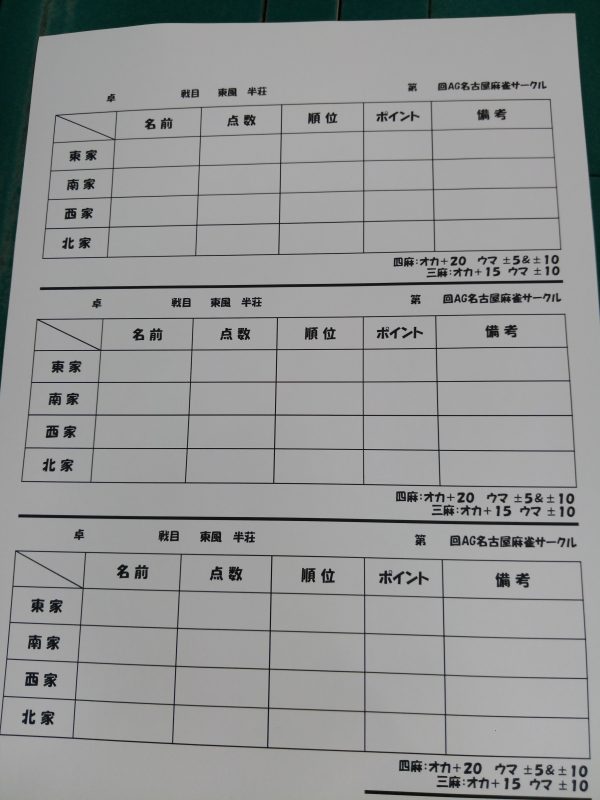 卓 戦目 東風 半荘 第 回AG名古屋麻雀サークル
名前 点数 順位 ポイント 備考
東家
南家
西家
北家
四麻:オカ+20 ウマ ±5&±10
三麻:オカ+15 ウマ ±10
卓 戦目 東風 半荘 第 回AG名古屋麻雀サークル
名前 点数 順位 ポイント 備考
東家
南家
西家
北家
四麻:オカ+20 ウマ ±5&±10
三麻:オカ+15 ウマ ±10
卓 戦目 東風 半荘 第 回AG名古屋麻雀サークル
名前 点数 順位 ポイント 備考
東家
南家
西家
北家
四麻:オカ+20 ウマ ±5&±10
三麻:オカ+15 ウマ ±10